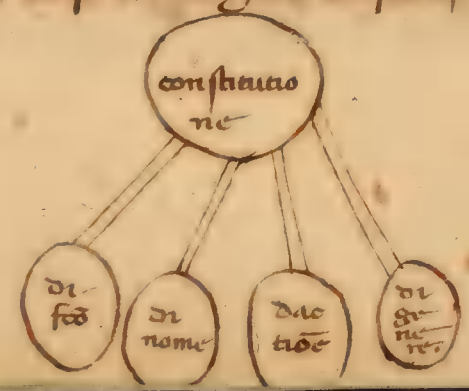 constitutio
ne
di
fcō
di
nome
dac
tiōe
di
ge
ne
re.